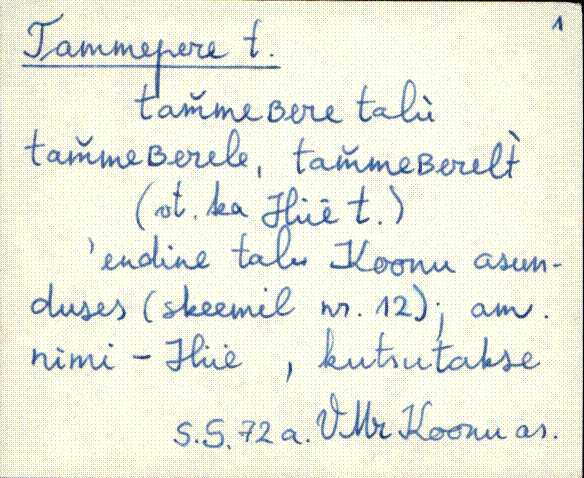 1
Tammepere t.
tam̆meBere talù
tam̆meBerele, tam̆meBerelt̀
(vt. ka Hiiė t.)
'endine talu Koonu asun-
duses (skeemil nr. 12); am.
nimi - Hiie, kutsutakse
S.S. 72 a. VMr Koonu as.